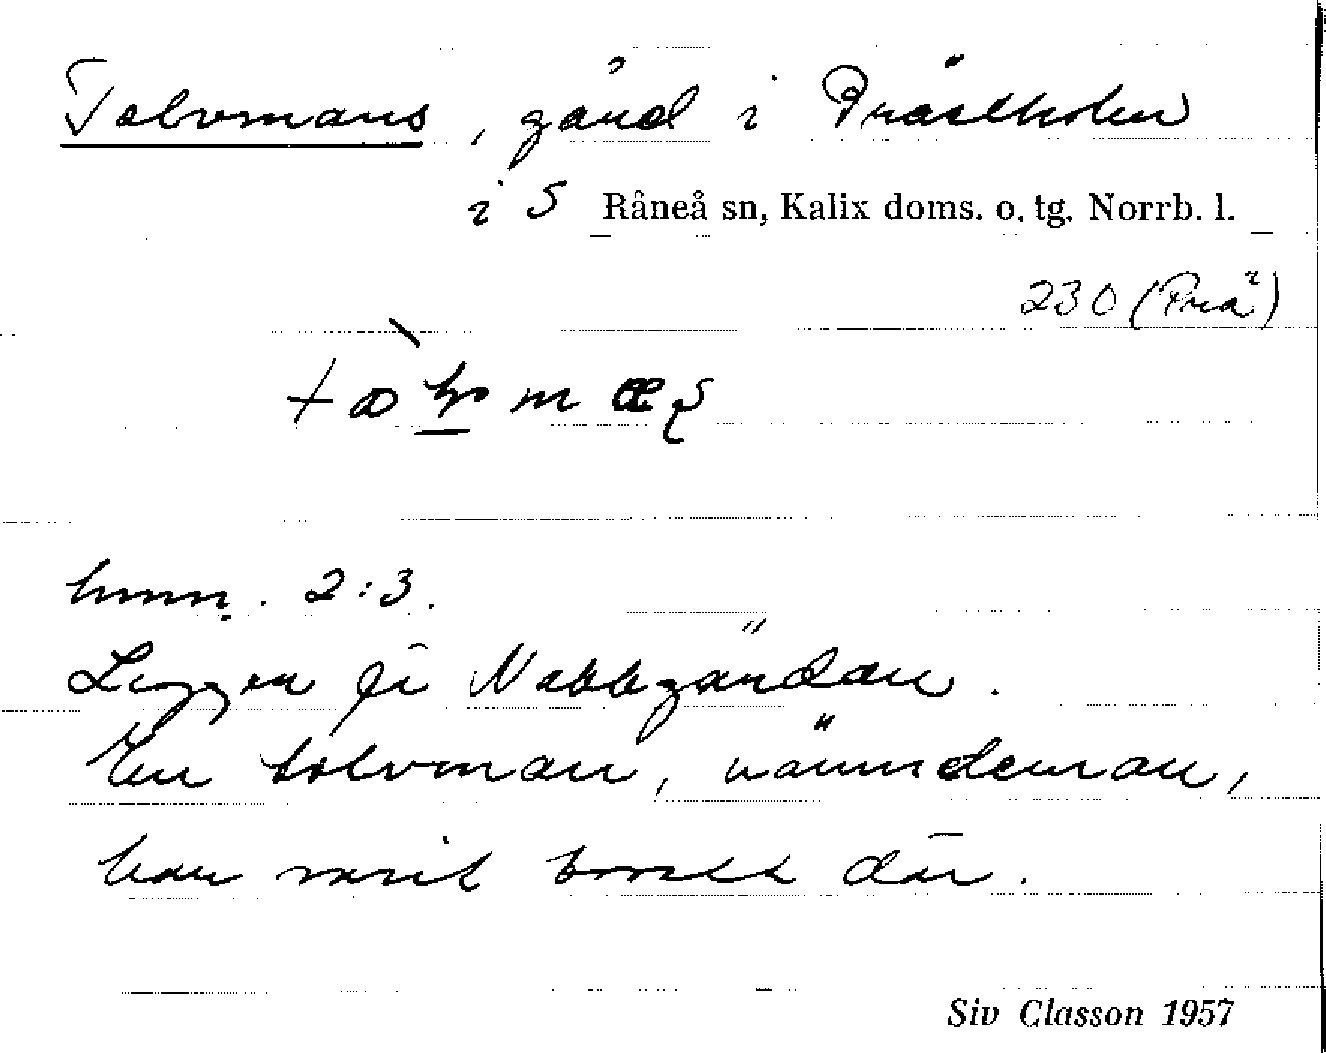 Tolvmans, gård i Prästholm
i S Råneå sn, Kalix doms. o. tg. Norrb. l.
230 (Prä²)
hmn. 2:3.
Ligger på Nabbgärdan.
En tolvman, nämndeman,
har varit bosatt där.
Siv Classon 1957